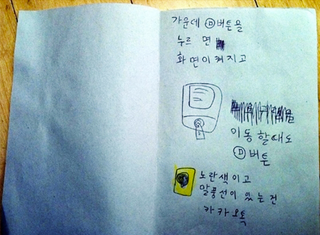 가운데 ⓓ버튼을
누르면
화면이 켜지고
이동할때도
ⓓ버튼
노란색이고
말풍선이 있는건
카카오톡